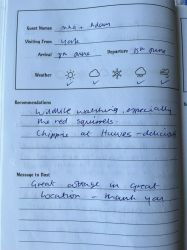 Guest Names
Adam
Visiting From York
Arrival June Departure 15th June
Weather
Recommendations
Wildlife watching, especially
the red squirrels.
Chippie at Hawes - delicious
Message to Host
Great cottage in great
location - thank you